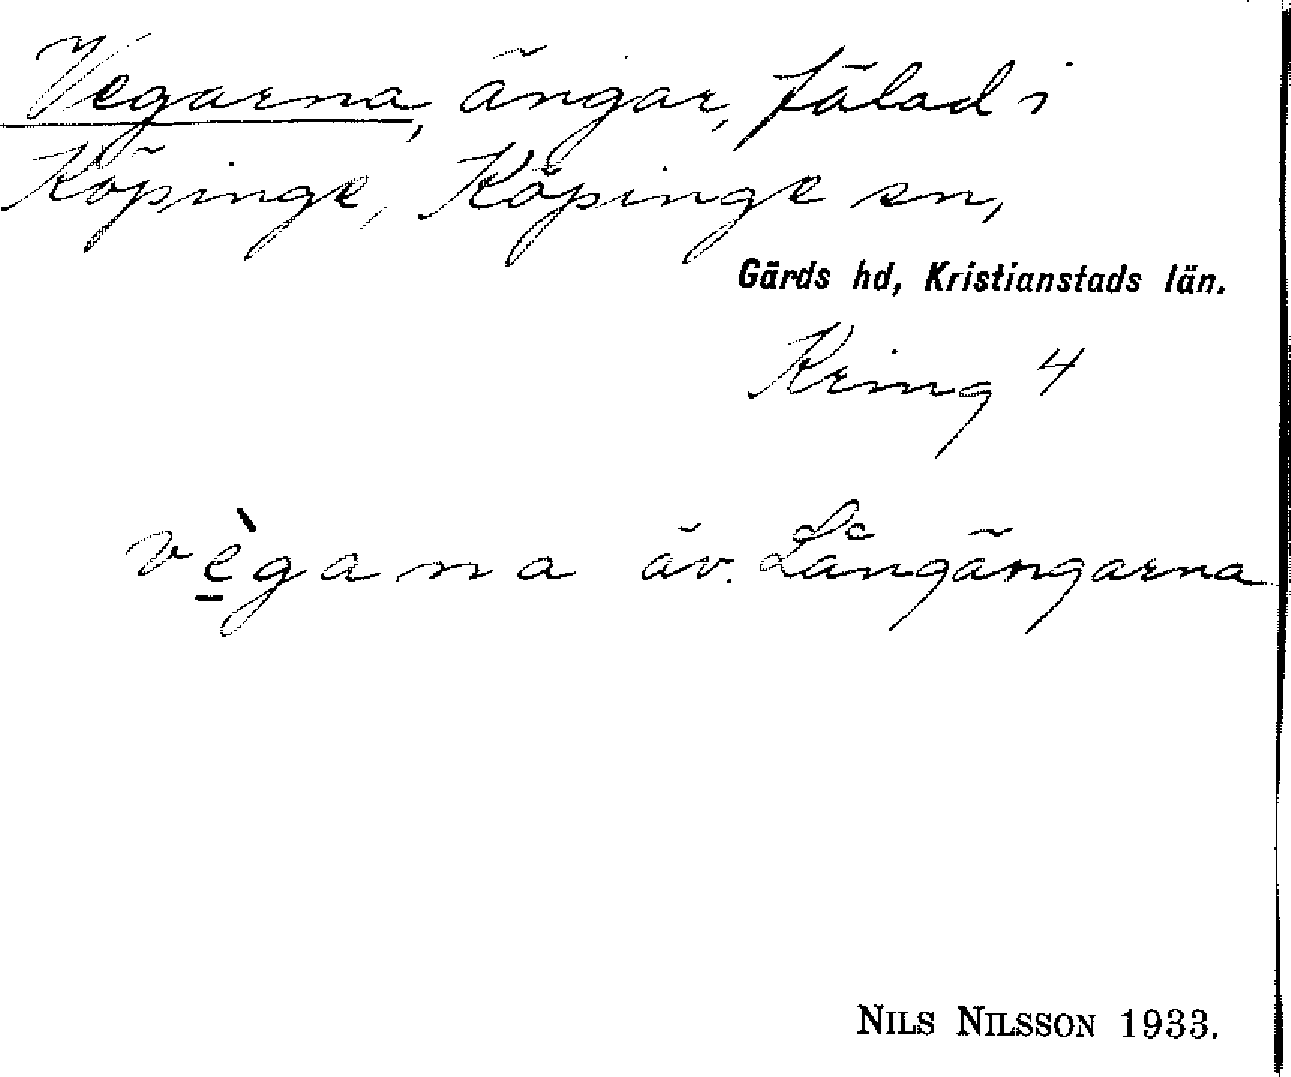 Vegarna, ängar, fälad i
Köpinge, Köpinge sn,
Gärds hd, Kristianstads län.
Kring 4
vègana äv. Långängarna
NILS NILSSON 1933.